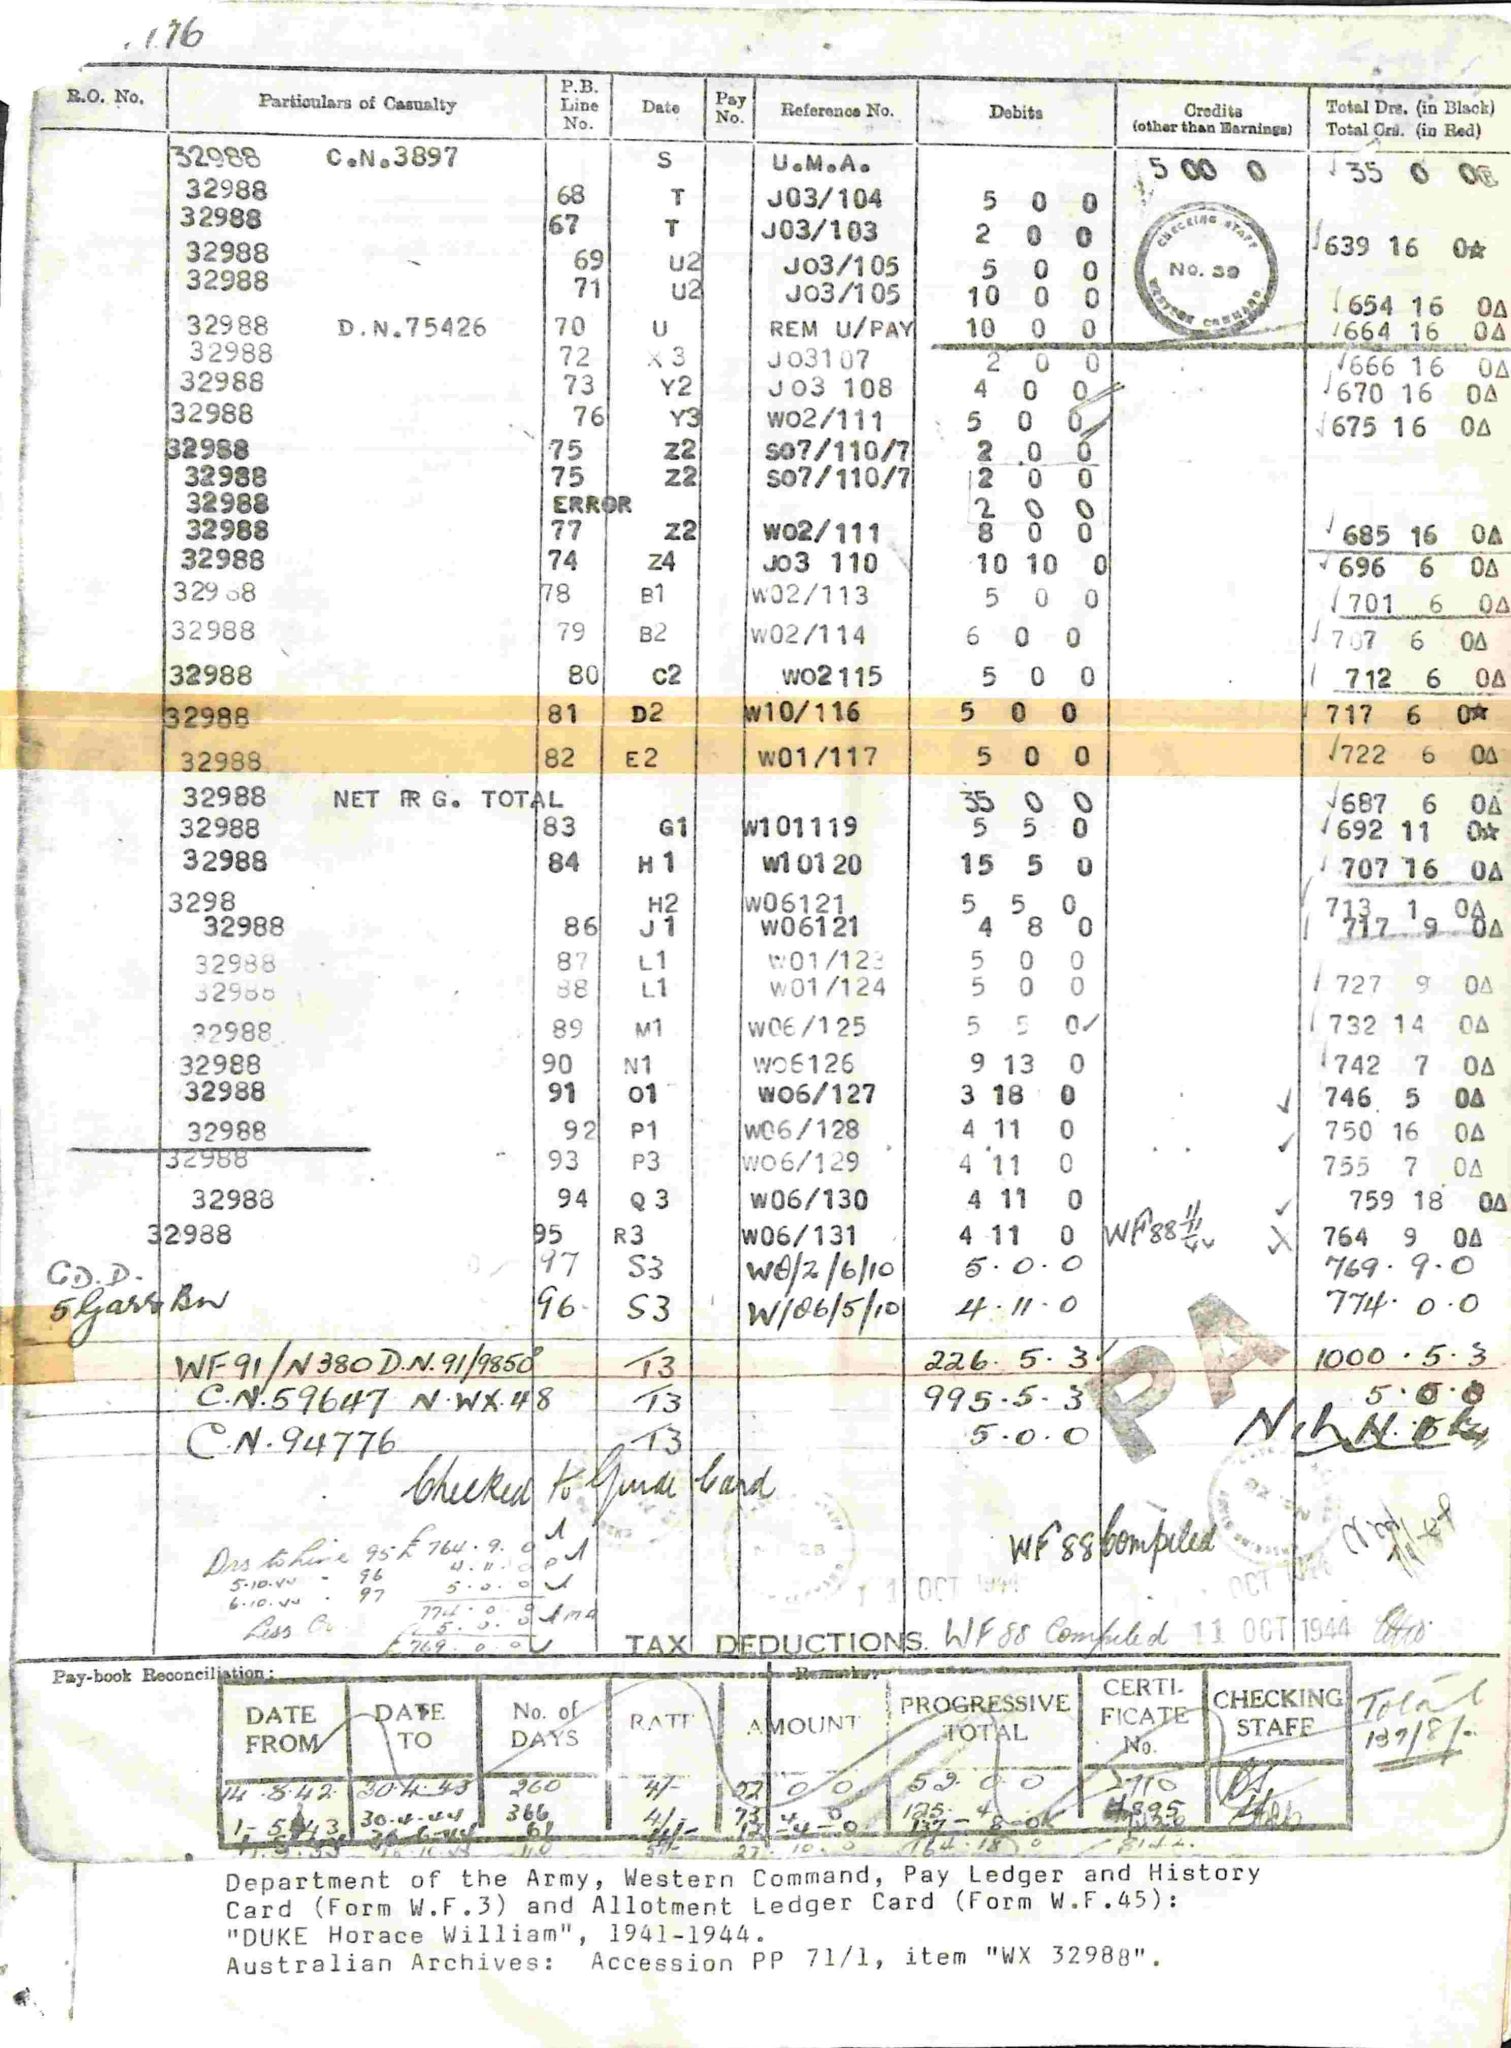 176
R.O. No. Particulars of Casualty P.B. Line No. Date Pay No. Reference No. Debits Credits (other than Earnings) Total Drs. (in Black) Total Crs. (in Red)
32988 C.N.3897 S U.M.A. 5 00 0 35 0 0
32988 68 T J03/104 5 0 0
32988 67 T J03/103 2 0 0 639 16 0☆
32988 69 U2 J03/105 5 0 0
32988 71 U2 J03/105 10 0 0 654 16 0Δ
CHECKING STAFF No. 39 WESTERN COMMAND
32988 D.N.75426 70 U REM U/PAY 10 0 0 664 16 0Δ
32988 72 X3 J03107 2 0 0 666 16 0Δ
32988 73 Y2 J03 108 4 0 0 670 16 0Δ
32988 76 Y3 W02/111 5 0 0 675 16 0Δ
32988 75 Z2 S07/110/7 2 0 0
32988 75 Z2 S07/110/7 2 0 0
32988 ERROR 2 0 0
32988 77 Z2 W02/111 8 0 0 685 16 0Δ
32988 74 Z4 J03 110 10 10 0 696 6 0Δ
32988 78 B1 W02/113 5 0 0 701 6 0Δ
32988 79 B2 W02/114 6 0 0 707 6 0Δ
32988 80 C2 W02115 5 0 0 712 6 0Δ
32988 81 D2 W10/116 5 0 0 717 6 0☆
32988 82 E2 W01/117 5 0 0 722 6 0Δ
32988 NET RG. TOTAL 35 0 0 687 6 0Δ
32988 83 G1 W101119 5 5 0 692 11 0☆
32988 84 H1 W10120 15 5 0 707 16 0Δ
3298 H2 W06121 5 5 0 713 1 0Δ
32988 86 J1 W06121 4 8 0 717 9 0Δ
32988 87 L1 W01/123 5 0 0
32988 88 L1 W01/124 5 0 0 727 9 0Δ
32988 89 M1 W06/125 5 5 0 732 14 0Δ
32988 90 N1 W06126 9 13 0 742 7 0Δ
32988 91 O1 W06/127 3 18 0 746 5 0Δ
32988 92 P1 W06/128 4 11 0 750 16 0Δ
32988 93 P3 W06/129 4 11 0 755 7 0Δ
32988 94 Q3 W06/130 4 11 0 759 18 0Δ
32988 95 R3 W06/131 4 11 0 WF88 764 9 0Δ
C.D.D. 97 S3 W0/2/6/10 5.0.0 769.9.0
5 Garr Bn 96 S3 W/06/5/10 4.11.0 774.0.0
WF91/N380 D.N.91/9850 T3 226.5.3 1000.5.3
C.N.59647 N.WX.48 T3 995.5.3 5.0.0
C.N.94776 T3 5.0.0
PA
Checked to Guide Card
Drs to Line 95 £764.9.0
5.10.44 96 4.11.0
6.10.44 97 5.0.0
774.0.0
Less Cr. 5.0.0
£769.0.0
WF88 Compiled
11 OCT 1944
TAX DEDUCTIONS. WF88 Compiled 11 OCT 1944
Pay-book Reconciliation: Remarks:
DATE FROM DATE TO No. of DAYS RATE AMOUNT PROGRESSIVE TOTAL CERTIFICATE No. CHECKING STAFF Total 137/8/-
14.8.42 30.4.43 260 4/- 52 0 0 52.0.0 2710
1-5-43 30-4-44 366 4/- 73 4 0 125.4 4895
61 4/- 12-4-0 137-8-0
110 5/- 27.10.0 164.18.0
Department of the Army, Western Command, Pay Ledger and History
Card (Form W.F.3) and Allotment Ledger Card (Form W.F.45):
"DUKE Horace William", 1941-1944.
Australian Archives: Accession PP 71/1, item "WX 32988".